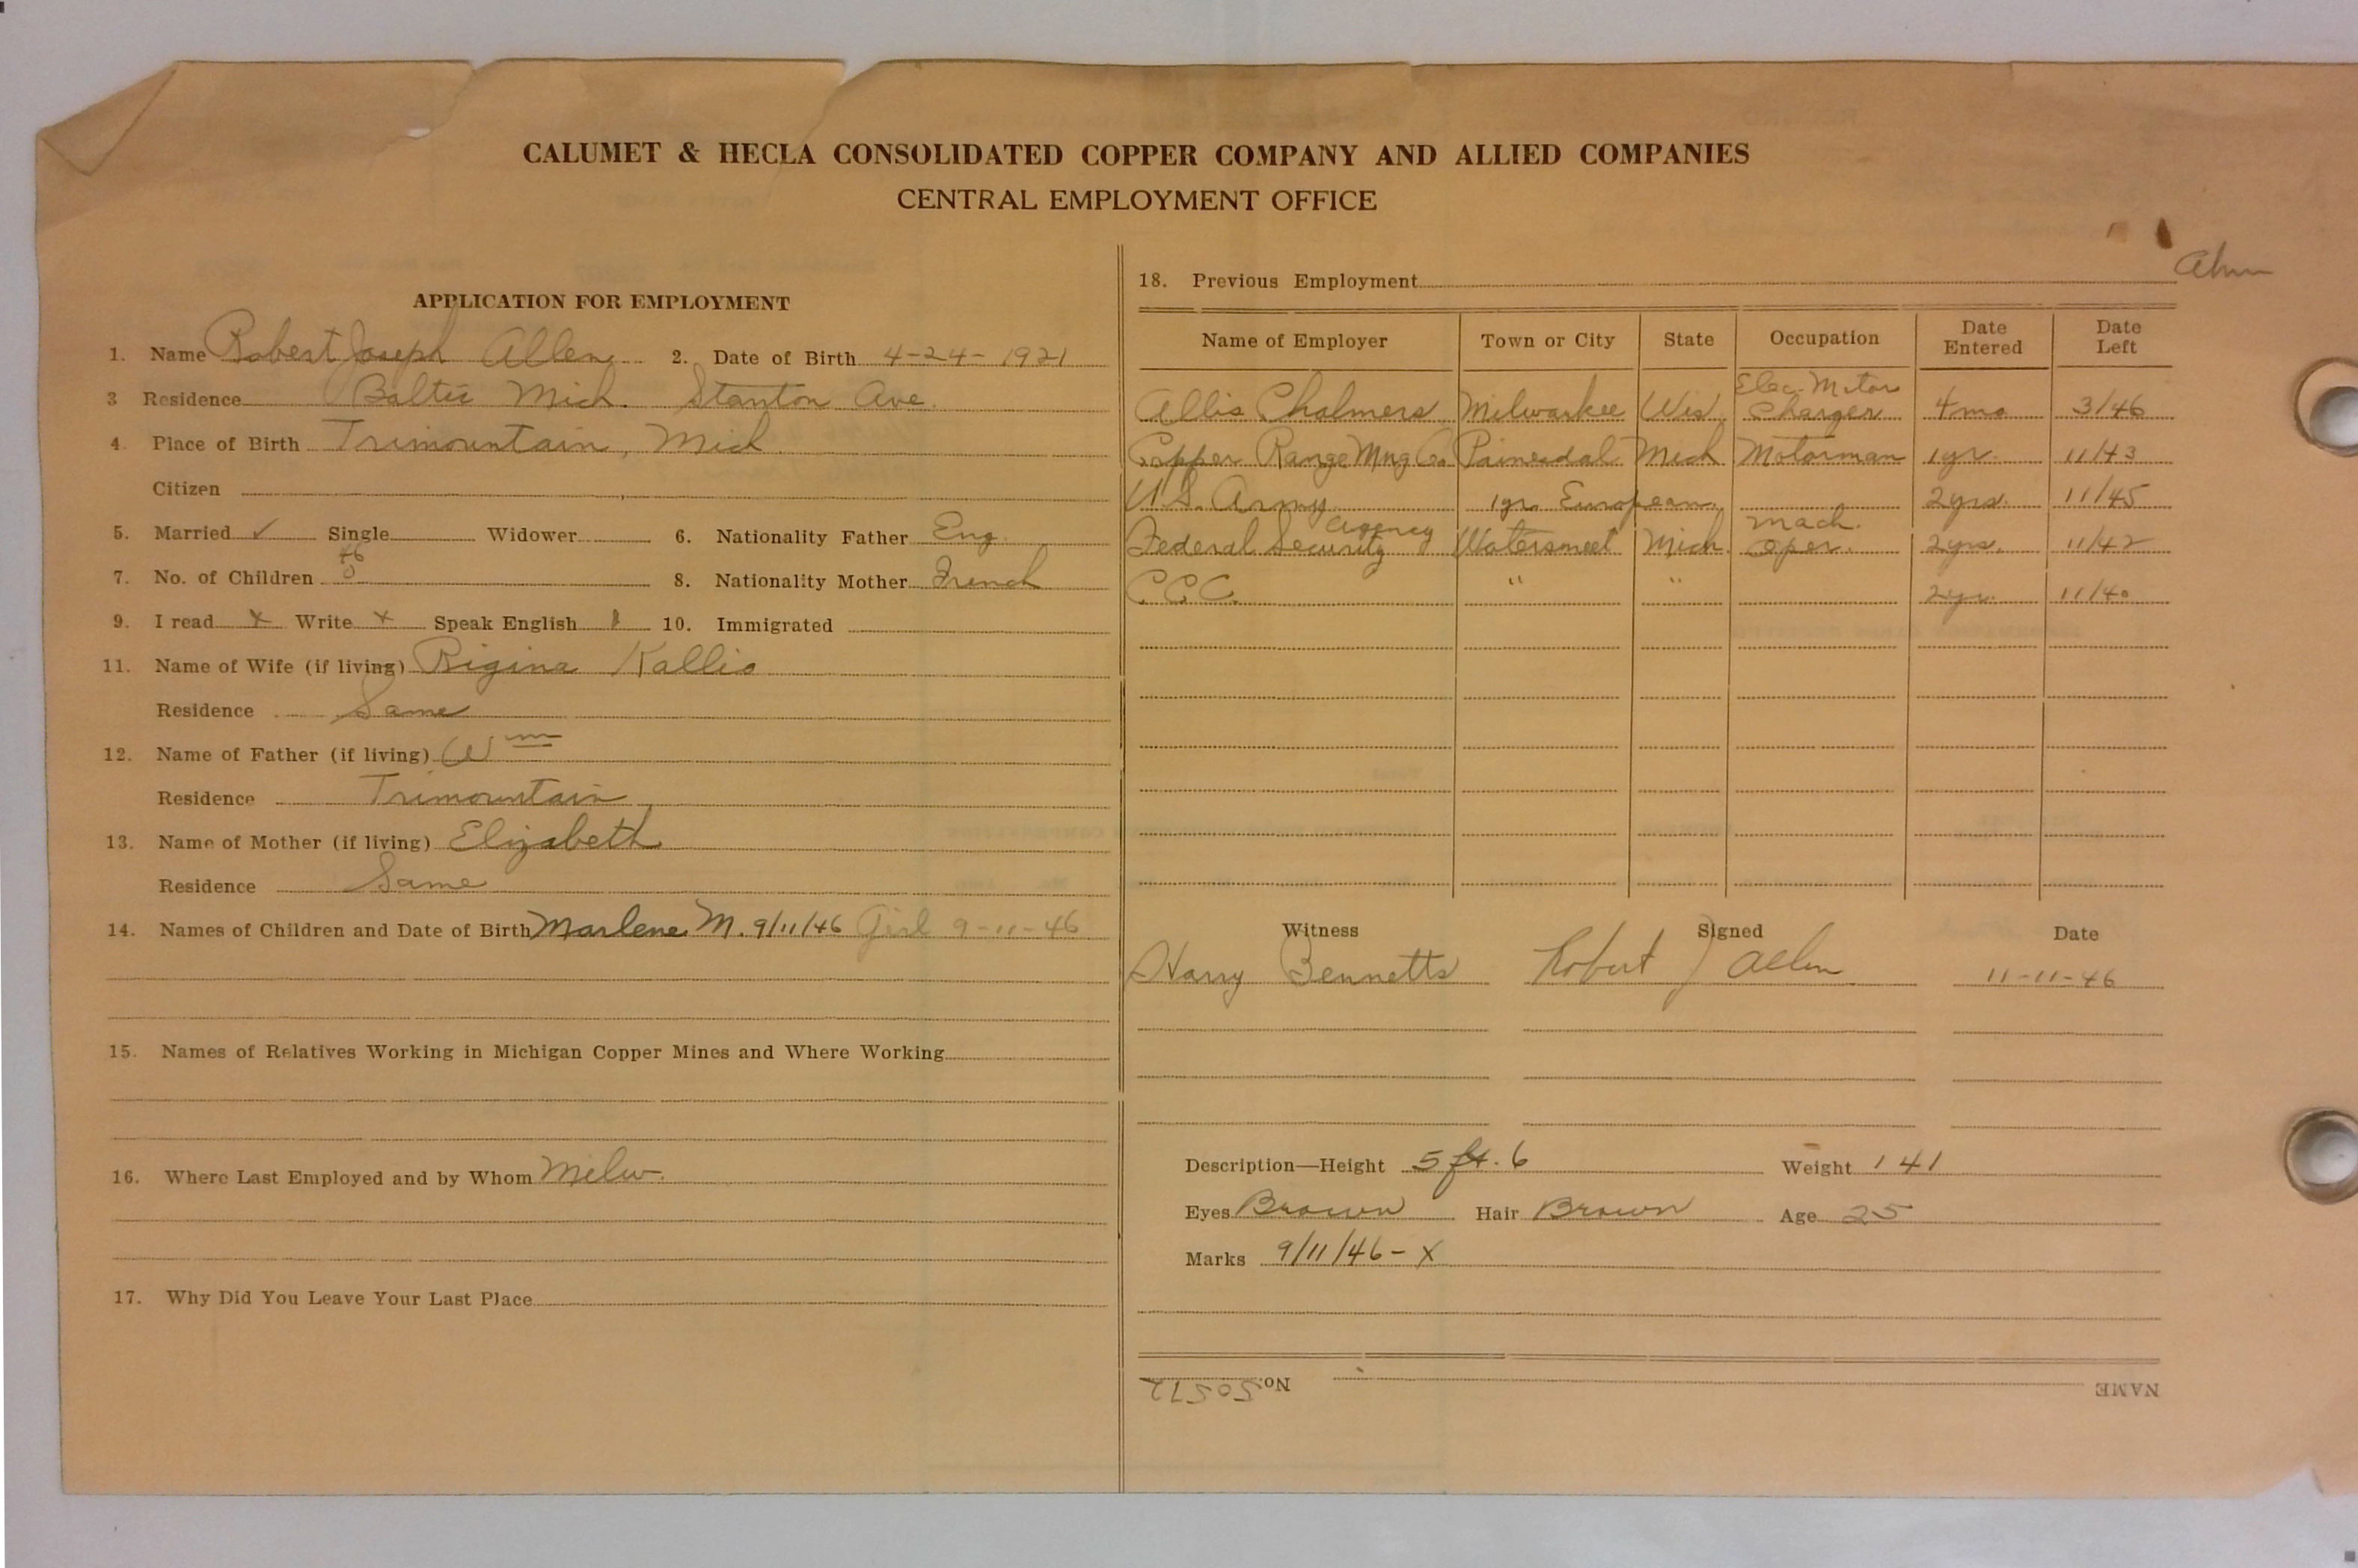 CALUMET & HECLA CONSOLIDATED COPPER COMPANY AND ALLIED COMPANIES
CENTRAL EMPLOYMENT OFFICE
APPLICATION FOR EMPLOYMENT
1. Name Robert Joseph Allen 2. Date of Birth 4-24-1921
3 Residence Baltic Mich. Stanton Ave.
4. Place of Birth Trimountain, Mich.
Citizen
5. Married ✓ Single Widower 6. Nationality Father Eng.
46
7. No. of Children 0 8. Nationality Mother French
9. I read x Write x Speak English 10. Immigrated
11. Name of Wife (if living) Rigina Kallio
Residence Same
12. Name of Father (if living) Wm
Residence Trimountain
13. Name of Mother (if living) Elizabeth
Residence Same
14. Names of Children and Date of Birth Marlene M. 9/11/46 Girl 9-11-46
15. Names of Relatives Working in Michigan Copper Mines and Where Working
16. Where Last Employed and by Whom Milw.
17. Why Did You Leave Your Last Place
18. Previous Employment
Name of Employer Town or City State Occupation Date Entered Date Left
Allis Chalmers Milwaukee Wis. Elec. Motor Charger 4 mo 3/46
Copper Range Mng Co Painesdal Mich Motorman 1 yr. 11/43
U.S. Army 1 yr. European 2 yrs. 11/45
Federal Security Agency Watersmeet Mich. Mach. Oper. 2 yrs. 11/42
C.C.C. " " 2 yr. 11/40
Witness Signed Date
Harry Bennetts Robert J Allen 11-11-46
Description—Height 5 ft. 6 Weight 141
Eyes Brown Hair Brown Age 25
Marks 9/11/46 - X
No. 50572
NAME